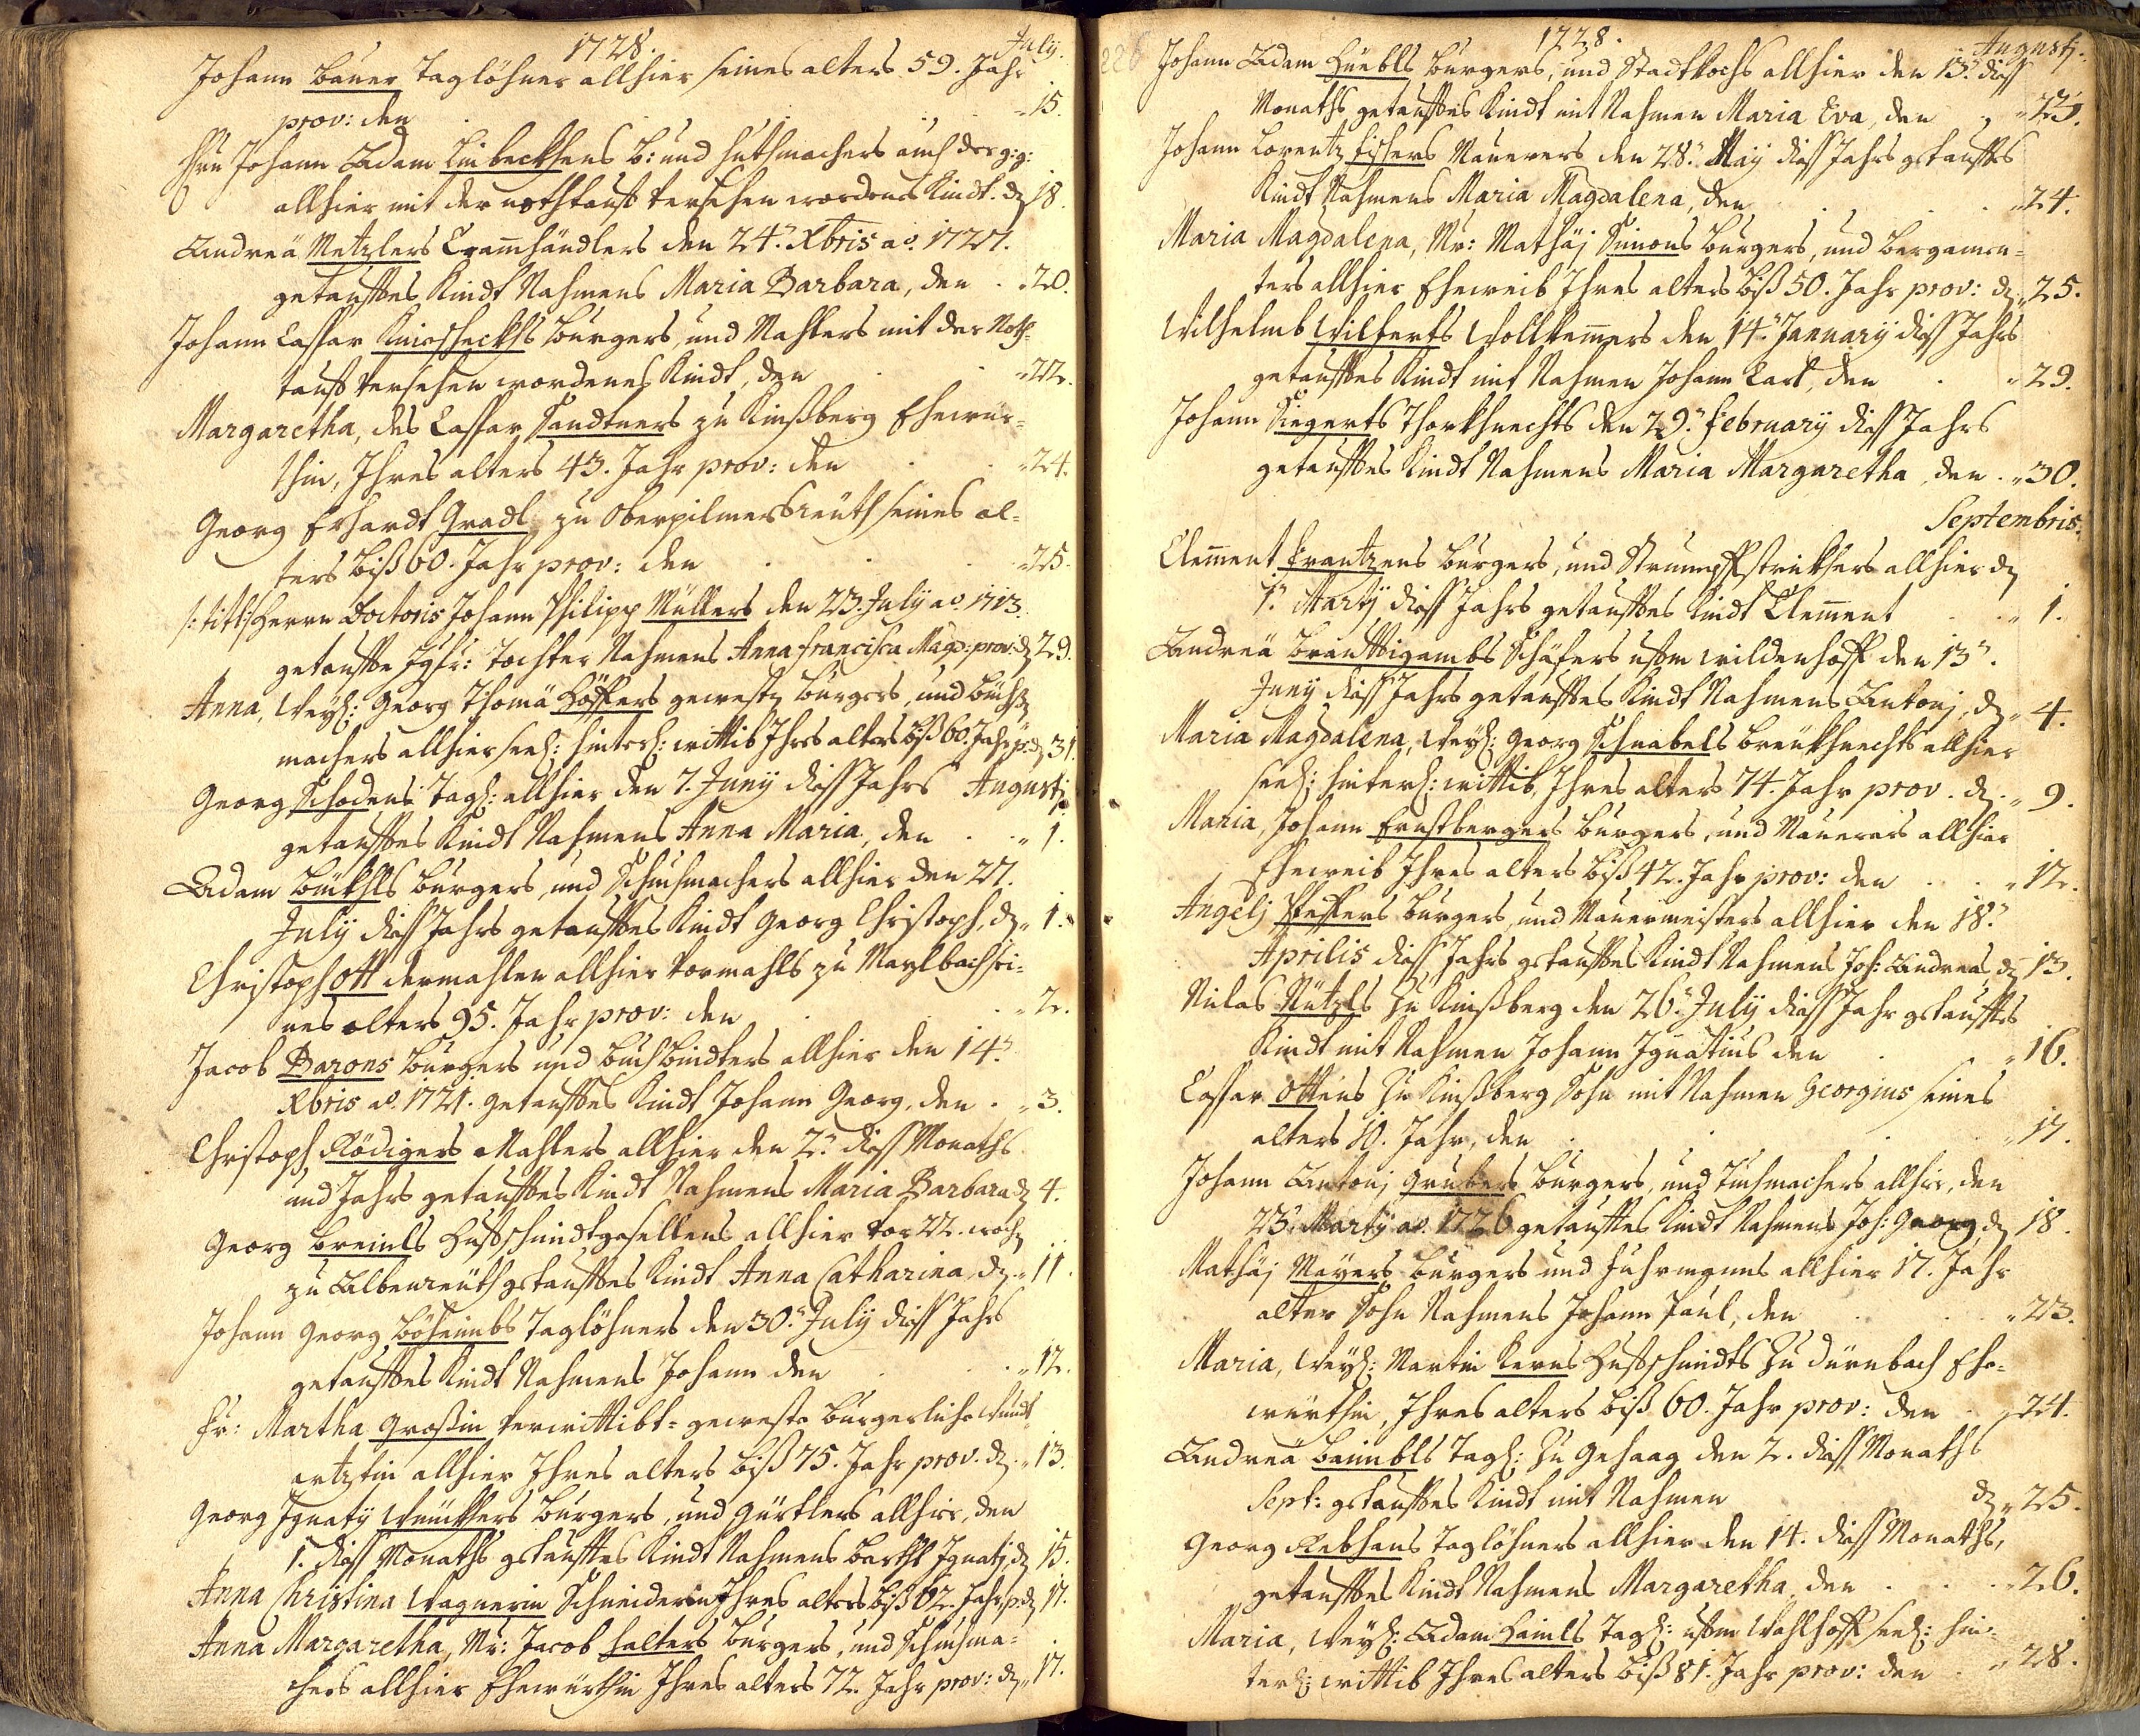 1728. July.
Johann Bauer Taglöhner allhier seines alters 59. Jahr
prov: den 15.
Johann Adam Limbeckhens B: und Huthmachers auch des g:g:
allhier mit der nothtauf versehen wordenes Kindt. dʒ 18.
Andreä Metzlers Cramhändlers den 24. Xbris aō. 1727.
getaufftes Kindt Nahmens Maria Barbara, den 20.
Johann Caspar Burgers, und Mahlers mit der Noth-
tauf versehen wordenes Kindt, den 22.
Margaretha, des Caspar Sandtners zu Kinßberg Ehewür-
thin, Ihres alters 43. Jahr prov: den 24.
Georg Erhardt Gradl zu Oberpilmersreuth seines al-
ters biß 60. Jahr prov: den 25.
/:titl:/ Herrn Doctoris Johann Philipp Müllers den 23. July aō. 1713.
getauffte Jgfr: Tochter Nahmens Anna Francisca Magd: prov: dʒ 29.
Anna, Weyl: Georg Thomä Höffers gewestʒ Burgers, und Buchß
machers allhier seel: hinterl: wittib Ihres alters biß 60. Jahr p: dʒ 31.
Georg Schodens Tagl: allhier den 7. Juny diß Jahrs Augustj.
getaufftes Kindt Nahmens Anna Maria, den 1.
Adam Burgers, und Schuhmachers allhier den 27.
July diß Jahrs getaufftes Kindt Georg Christoph, dʒ 1.
Christoph Ott dermahlen allhier vormahls zu Maylbach sei-
nes alters 95. Jahr prov: den 2.
Jacob Barons Burgers und Buchbindters allhier den 14.
Xbris aō. 1721. getaufftes Kindt Johann Georg, den 3.
Christoph Rödigers Mahlers allhier den 2. diß Monaths
und Jahrs getaufftes Kindt Nahmens Maria Barbara dʒ 4.
Georg Breinls Hufschmidtgesellens allhier vor 22. woch
zu Albenreuth getaufftes Kindt Anna Catharina, dʒ 11.
Johann Georg Böheimbs Taglöhners den 30. July diß Jahrs
getaufftes Kindt Nahmens Johann den 12.
Fr: Martha Großin verwittibt- geweste Burgerliche Wundt
artztin allhier Ihres alters biß 75. Jahr prov. dʒ 13.
Georg Ignaty Burgers, und Gürtlers allhier, den
1. diß Monaths getaufftes Kindt Nahmens Barthl Ignatj, dʒ 15.
Anna Christina Wagnerin Schneiderin Ihres alters biß 62. Jahr p: dʒ 17.
Anna Margaretha, Mr: Jacob Halters Burgers, und Schuhma-
chers allhier Ehewürthin Ihres alters 72. Jahr prov: dʒ 17.
1728. Augustj.
Johann Adam Hüebls Burgers, und Stadtkochs allhier den 13. diß
Monaths getaufftes Kindt mit Nahmen Maria Eva, den
Johann Lorentz Fischers Maurers den 28. May diß Jahrs getaufftes
Kindt Nahmens Maria Magdalena, den 24.
Maria Magdalena, Mr: Mathäj Simons Burgers, und Bergamen-
ters allhier Eheweib Ihres alters biß 50. Jahr prov: dʒ 25.
Wilhelmb Wilferts Wollkemmers den 14. January diß Jahrs
getaufftes Kindt mit Nahmen Johann Carl, den 29.
Johann Siegerts Thorkhnechts den 29. February diß Jahrs
getaufftes Kindt Nahmens Maria Margaretha, den 30.
Septembris.
Clement Frantzens Burgers, und Strumpffstrickhers allhier dʒ
1. Marty diß Jahrs getaufftes Kindt Clement 1.
Andreä Breuttigambs Schäfers ufm Wildenhoff den 13.
Juny diß Jahrs getaufftes Kindt Nahmens Antonj, dʒ 4.
Maria Magdalena, Weyl: Georg Schnabels Breukhnechts allhier
seel: hinterl: wittib, Ihres alters 74. Jahr prov. dʒ 9.
Maria, Johann Ernstbergers Burgers, und Maurers allhier
Eheweib Ihres alters biß 42. Jahr prov: den 12.
Angelj Pfeffers Burgers, und Maurermeisters allhier den 18.
Aprilis diß Jahrs getaufftes Kindt Nahmens Joh: Andreas, dʒ 13.
Niclas Nützls zu Kinßberg den 26. July diß Jahr getaufftes
Kindt mit Nahmen Johann Ignatius den 16.
Caspar Ottens zu Kinßberg Sohn mit Nahmen Georgius seines
alters 10. Jahr, den 17.
Johann Antonj Grubers Burgers, und Tuchmachers allhier, den
23. Marty aō. 1726 getaufftes Kindt Nahmens Joh: Georg, dʒ 18.
Mathäj Mayers Burgers und Fuhrmanns allhier 17. Jahr
alter Sohn Nahmens Johann Paul, den 23.
Maria, Weyl: Martin Kerns Hufschmidts zu Dürnbach Ehe-
würthin, Ihres alters biß 60. Jahr prov: den 24.
Andreä Tagl: zu Gehaag den 2. diß Monaths
Sept: getaufftes Kindt mit Nahmen dʒ 25.
Georg Rebhans Taglöhners allhier den 14. diß Monaths,
getaufftes Kindt Nahmens Margaretha, den 26.
Maria, Weyl: Adam Hamls Tagl: ufm Wahlhoff seel: hin-
terl: wittib Ihres alters biß 81. Jahr prov: den 28.